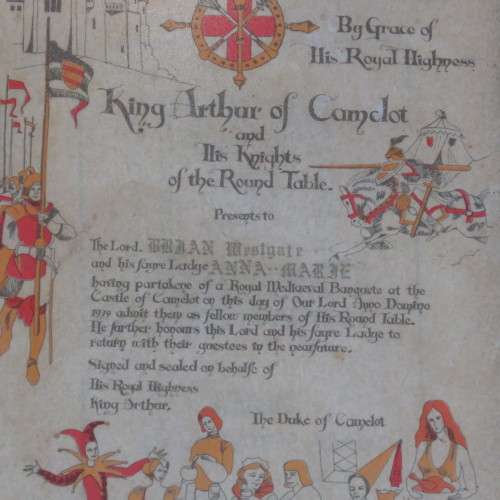 By Grace of
His Royal Highness
King Arthur of Camelot
and
His Knights
of the Round Table.
Presents to
The Lord. BRIAN Westgate
and his fayre Ladye ANNA-MARIE
having partakene of a Royal Mediaeval Banquete at the
Castle of Camelot on this day of Our Lord Anno Domino
1979 admit them as fellow members of His Round Table.
He further honours this Lord and his fayre Ladye to
return with their guestees in the nearfuture.
Signed and sealed on behalfe of
His Royal Highness
King Arthur.
The Duke of Camelot